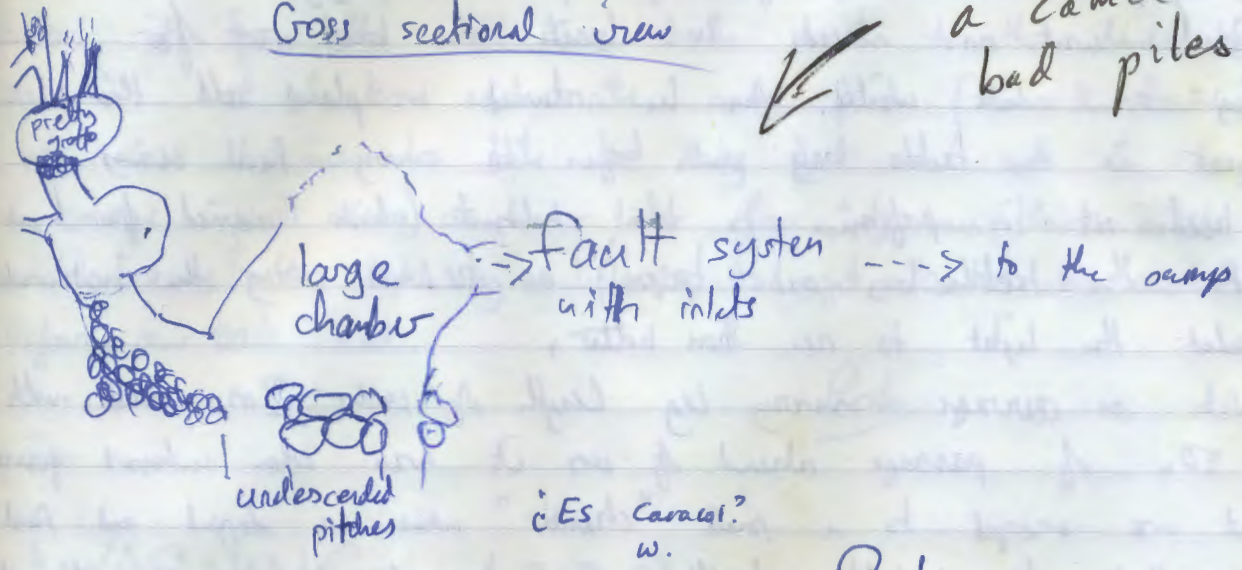 Cross sectional view
a
bad piles
pretty
grotto
large
chamber
fault system
with inlets
to the sumps
undescended
pitches
¿Es Caracol?
w.